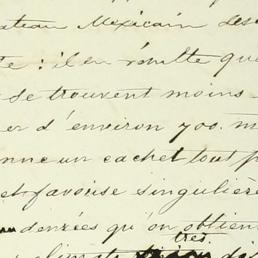 ateau Mexicain des
te: il en résulte que
se trouvent moins
er d'environ 700. m
onne un cachet tout p
et favorise singulière
denrées qu'on obtient
très